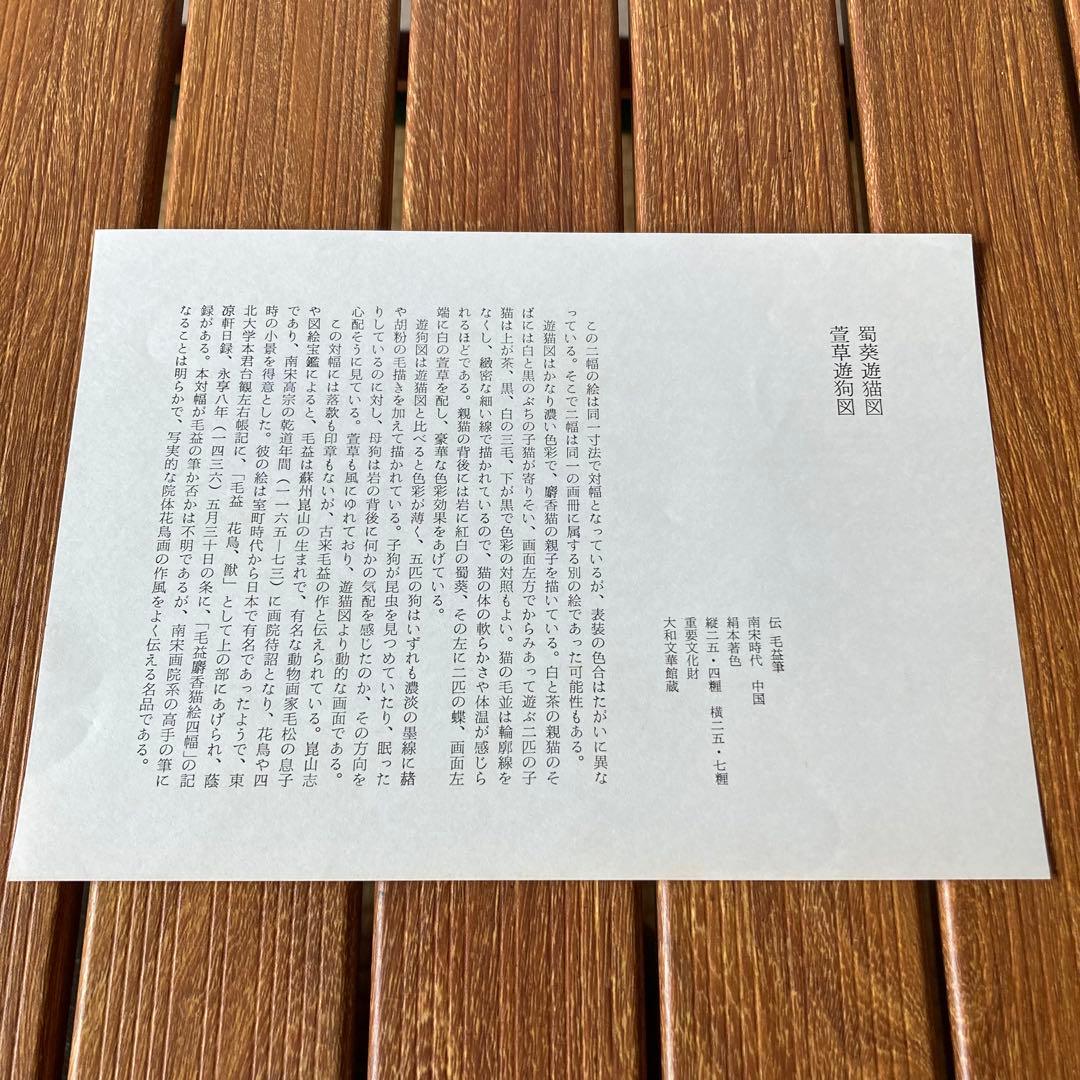 蜀葵遊猫図
萱草遊狗図
伝 毛益筆
南宋時代 中国
絹本著色
縦二五・四糎 横二五・七糎
重要文化財
大和文華館蔵
この二幅の絵は同一寸法で対幅となっているが、表装の色合はたがいに異な
っている。そこで二幅は同一の画冊に属する別の絵であった可能性もある。
遊猫図はかなり濃い色彩で、麝香猫の親子を描いている。白と茶の親猫のそ
ばには白と黒のぶちの子猫が寄りそい、画面左方でからみあって遊ぶ二匹の子
猫は上が茶、黒、白の三毛、下が黒で色彩の対照もよい。猫の毛並は輪廓線を
なくし、緻密な細い線で描かれているので、猫の体の軟らかさや体温が感じら
れるほどである。親猫の背後には岩に紅白の蜀葵、その左に二匹の蝶、画面左
端に白の萱草を配し、豪華な色彩効果をあげている。
遊狗図は遊猫図と比べると色彩が薄く、五匹の狗はいずれも濃淡の墨線に赭
や胡粉の毛描きを加えて描かれている。子狗が昆虫を見つめていたり、眠った
りしているのに対し、母狗は岩の背後に何かの気配を感じたのか、その方向を
心配そうに見ている。萱草も風にゆれており、遊猫図より動的な画面である。
この対幅には落款も印章もないが、古来毛益の作と伝えられている。崑山志
や図絵宝鑑によると、毛益は蘇州崑山の生まれで、有名な動物画家毛松の息子
であり、南宋高宗の乾道年間（一一六五―七三）に画院待詔となり、花鳥や四
時の小景を得意とした。彼の絵は室町時代から日本で有名であったようで、東
北大学本君台観左右帳記に、「毛益 花鳥、獣」として上の部にあげられ、蔭
凉軒日録、永享八年（一四三六）五月三十日の条に、「毛益麝香猫絵四幅」の記
録がある。本対幅が毛益の筆か否かは不明であるが、南宋画院系の高手の筆に
なることは明らかで、写実的な院体花鳥画の作風をよく伝える名品である。